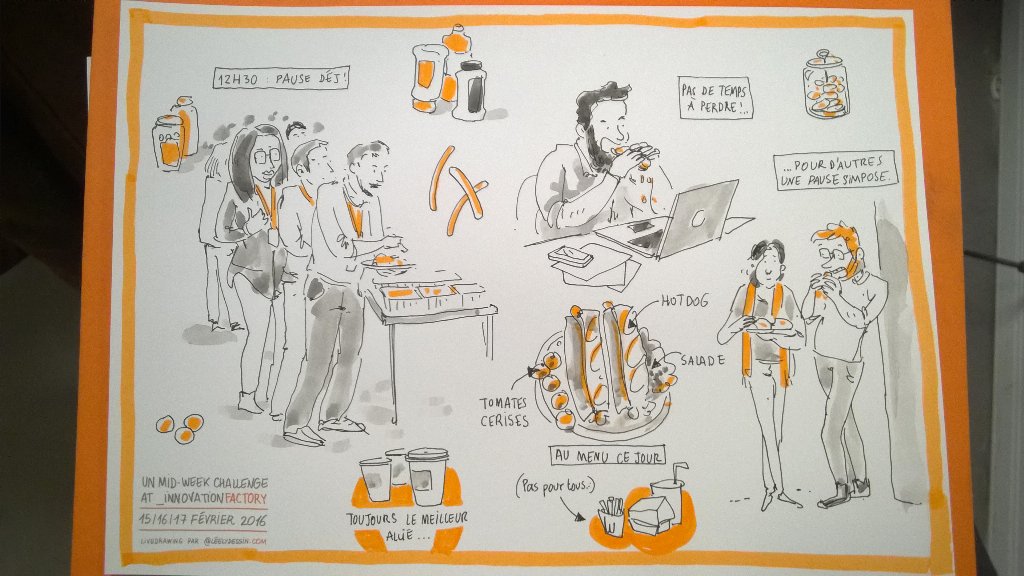 12H30 : PAUSE DÉJ!
PAS DE TEMPS
À PERDRE!...
...POUR D'AUTRES
UNE PAUSE S'IMPOSE.
HOTDOG
SALADE
TOMATES
CERISES
AU MENU CE JOUR
(Pas pour tous.)
TOUJOURS LE MEILLEUR
ALIÉ...
UN MID-WEEK CHALLENGE
AT _INNOVATIONFACTORY
15/16/17 FÉVRIER 2016
LIVEDRAWING PAR @LEELYDESSIN.COM